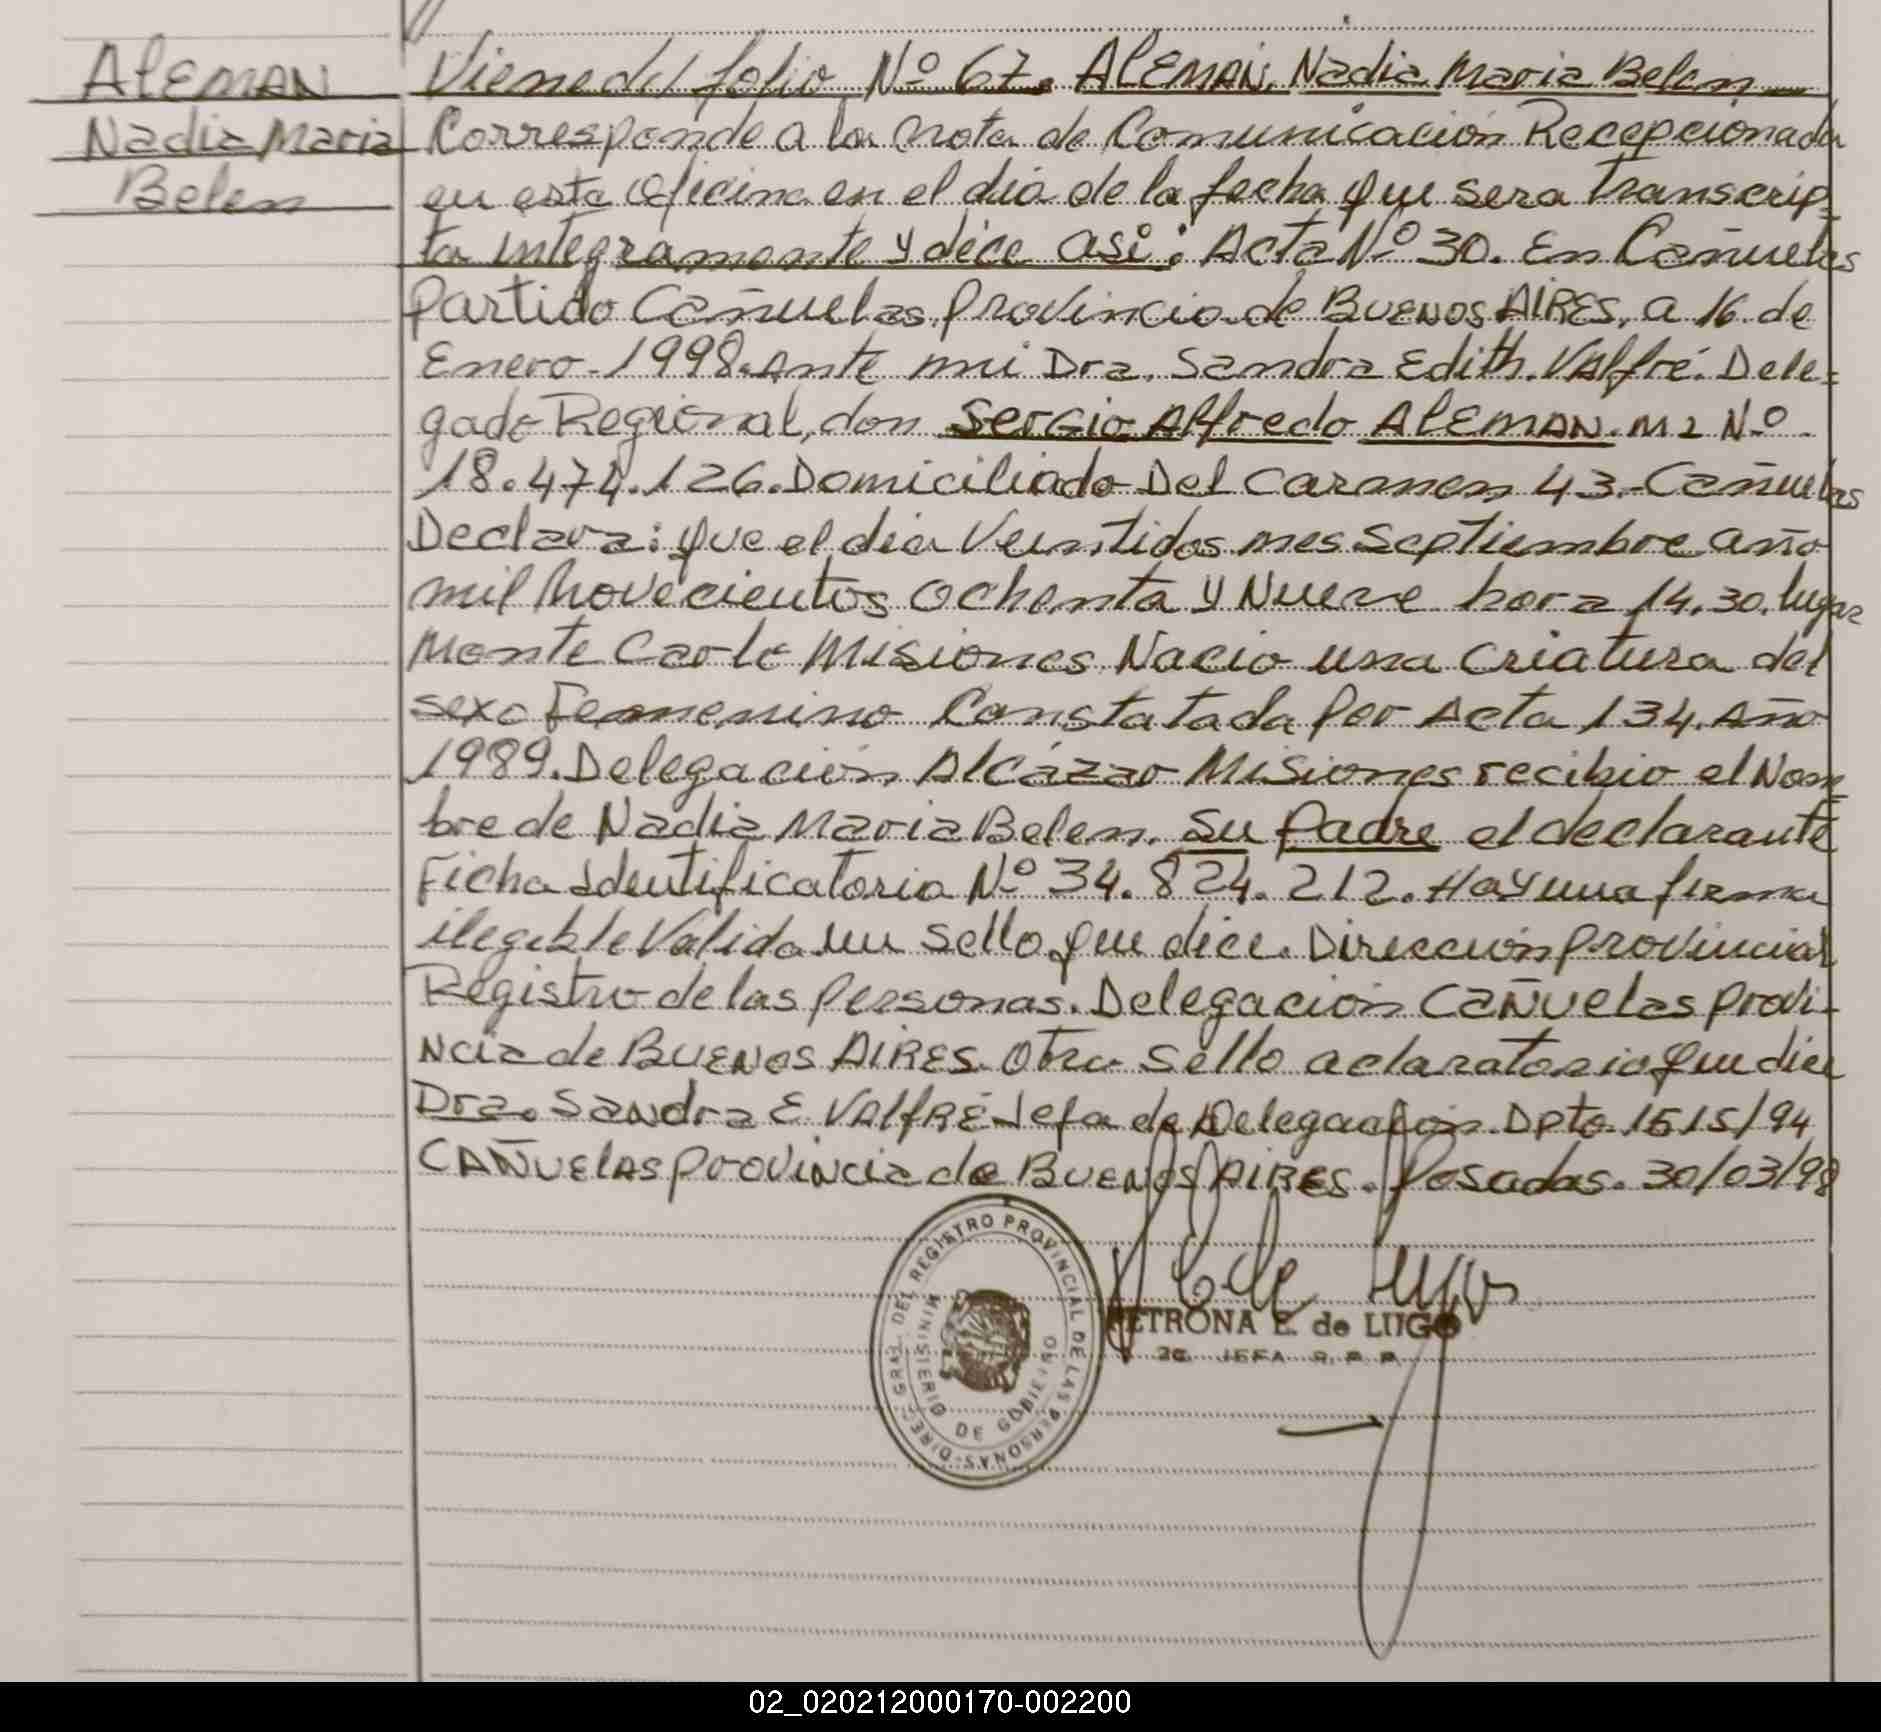 ALEMAN
Nadia Maria
Belen
Viene del folio Nº 67. ALEMAN, Nadia Maria Belen
Corresponde a la nota de Comunicación Recepcionada
en esta oficina en el día de la fecha que sera transcrip-
ta integramente y dice asi: Acta Nº 30. En Cañuelas
Partido Cañuelas Provincia de BUENOS AIRES, a 16 de
Enero 1998. Ante mi Dra. Sandra Edith Valfré. Dele-
gado Regional, don Sergio Alfredo ALEMAN. MI Nº
18.474.126. Domiciliado Del Carmen 43. Cañuelas
Declara: que el dia Veintidos mes Septiembre año
mil novecientos ochenta y Nueve hora 14.30. lugar
Monte Carlo Misiones Nacio una criatura del
sexo Femenino Constatada por Acta 134. Año
1989. Delegación Alcázar Misiones recibio el Nom-
bre de Nadia Maria Belen. Su Padre el declarante
Ficha Identificatoria Nº 34.824.212. Hay una firma
ilegible Valida un sello que dice. Dirección provincial
Registro de las Personas. Delegación Cañuelas Provi-
Ncia de BUENOS AIRES. Otro sello aclaratorio que dice
Dra. Sandra E. Valfré Jefa de Delegación. Dpto. 1515/94
CAÑUELAS PROVINCIA de BUENOS AIRES. Posadas. 30/03/98
DIREC. GRAL. DEL REGISTRO PROVINCIAL DE LAS PERSONAS
MINISTERIO DE GOBIERNO
PETRONA E. de LUGO
JEFA R. P. P.
02_020212000170-002200